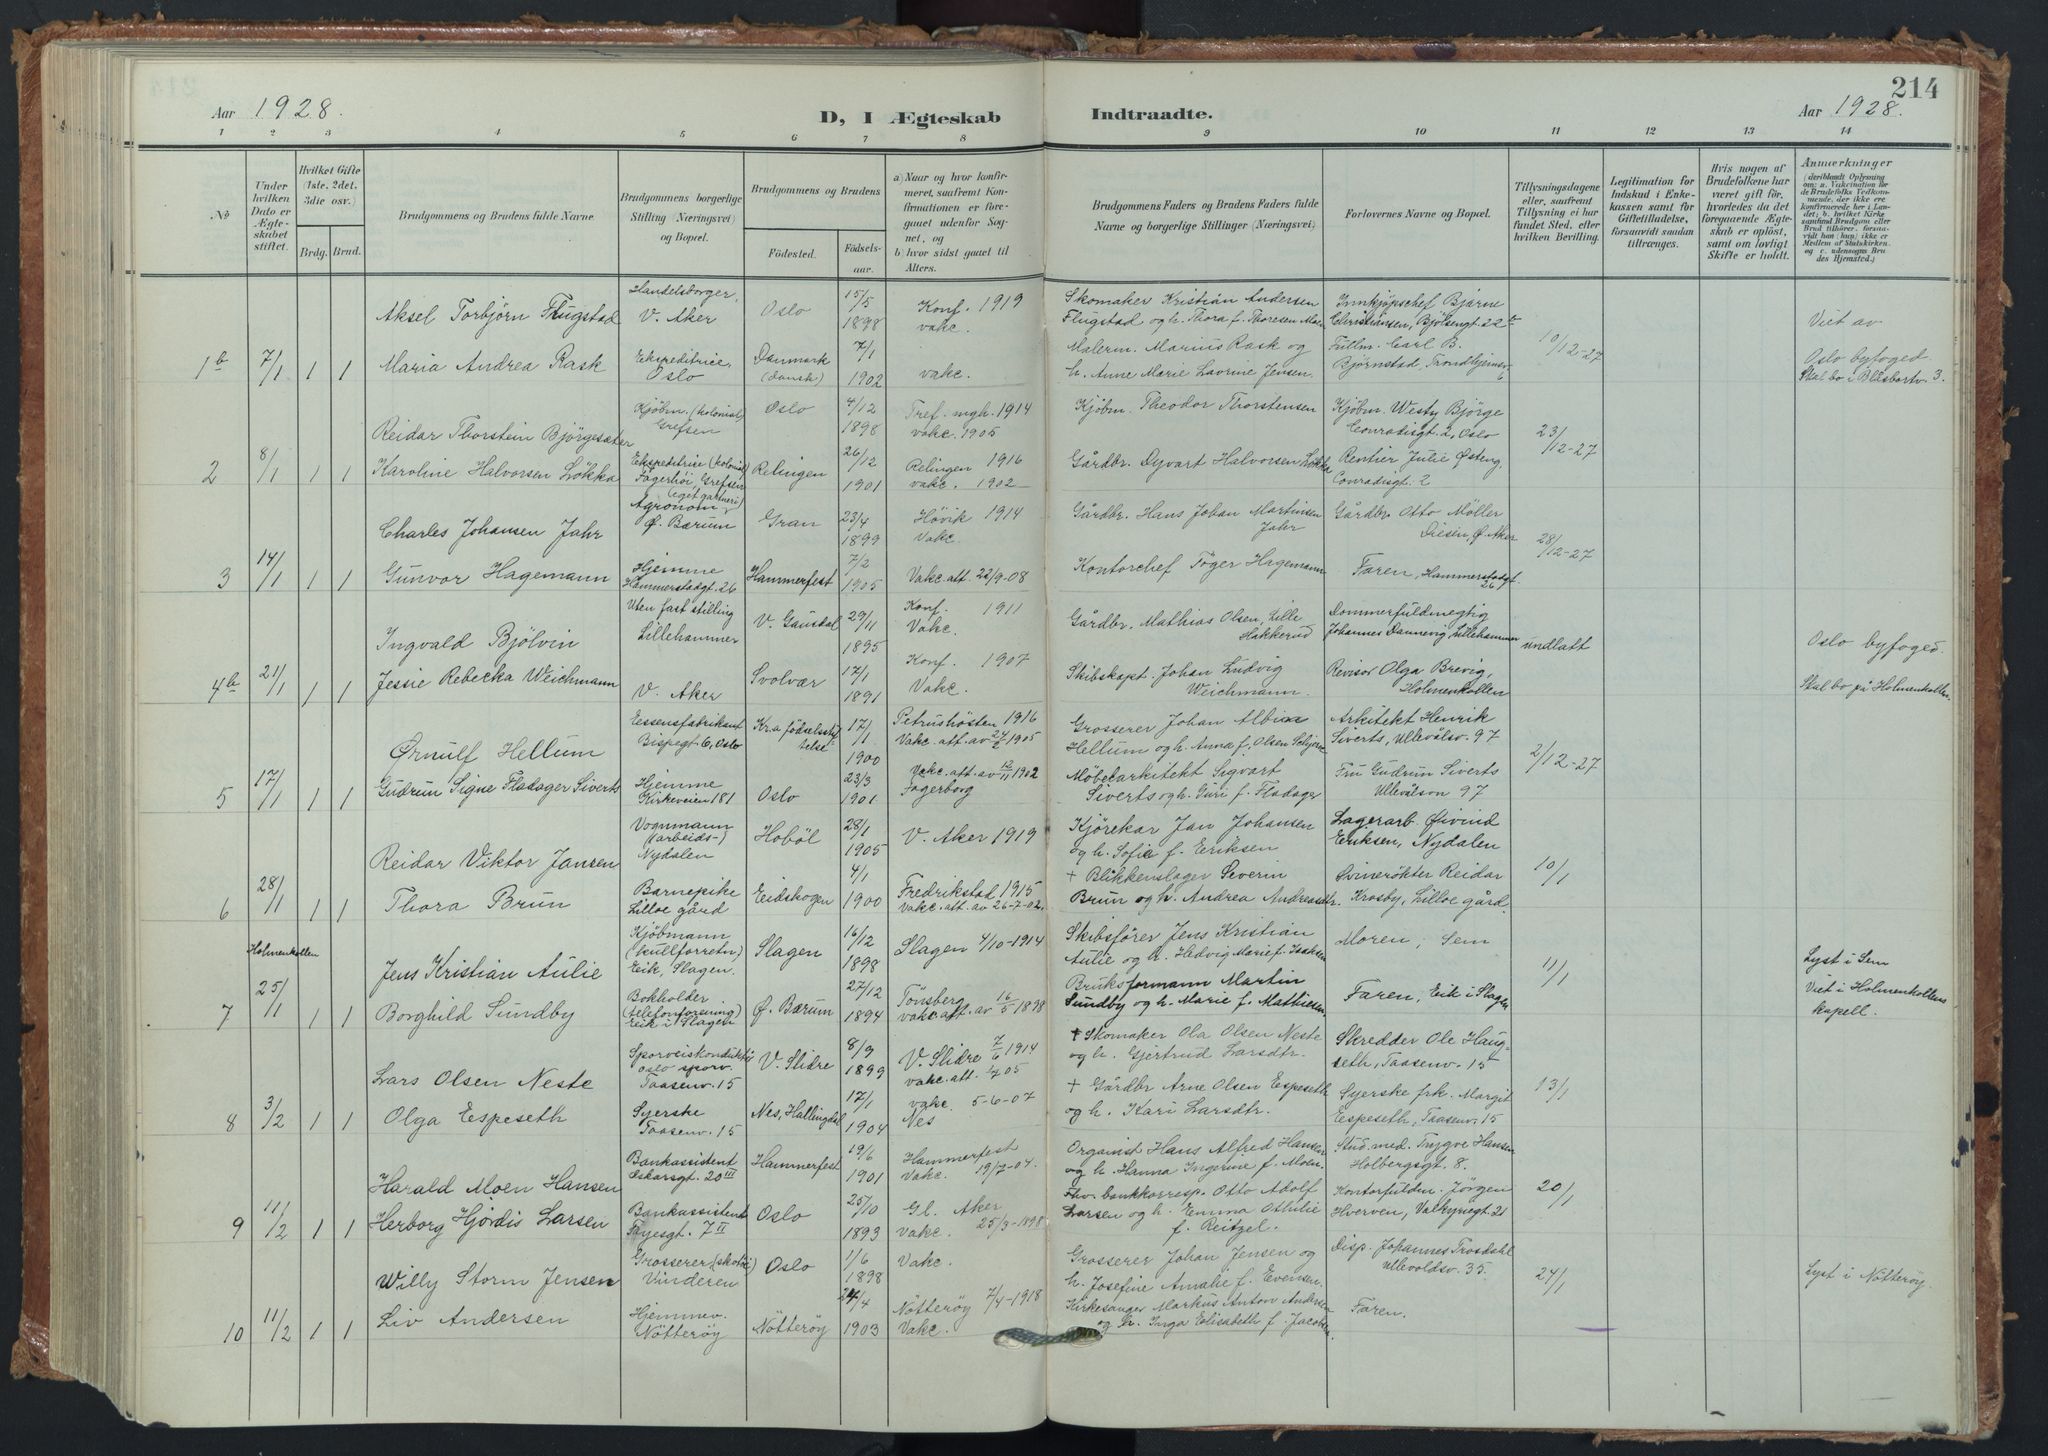 214
Aar 1928.
D, I Ægteskab Indtraadte.
Aar 1928.
1 2 3 4 5 6 7 8 9 10 11 12 13 14
No
Under hvilken Dato er Ægteskabet stiftet.
Hvilket Gifte (1ste, 2det, 3die osv.)
Brdg. Brud.
Brudgommens og Brudens fulde Navne.
Brudgommens borgerlige Stilling (Næringsvei) og Bopæl.
Brudgommens og Brudens
Fødested.
Fødselsaar.
a) Naar og hvor konfirmeret, saafremt Konfirmationen er foregaaet udenfor Sognet, og
b) hvor sidst gaaet til Alters.
Brudgommens Faders og Brudens Faders fulde Navne og borgerlige Stillinger (Næringsvei)
Forlovernes Navne og Bopæl.
Tillysningsdagene eller, saafremt Tillysning ei har fundet Sted, efter hvilken Bevilling.
Legitimation for Indskud i Enkekassen samt for Giftetilladelse, forsaavidt saadan tiltrænges.
Hvis nogen af Brudefolkene har været gift før, hvorledes da det foregaaende Ægteskab er opløst, samt om lovligt Skifte er holdt.
Anmerkninger (deriblandt Oplysning om: a. Vakcination for de Brudefolks Vedkommende, der ikke ere konfirmerede her i Landet; b. hvilket Kirkesamfund Brudgom eller Brud tilhører, forsaavidt han (hun) ikke er Medlem af Statskirken, og c. udensogns Brudes Hjemsted.)
Aksel Torbjörn Flugstad Handelsborger, V. Aker Oslo 15/5 1898 Konf. 1919 vakc. Skomaker Kristian Andersen Flugstad og h. Thora f. Thoresen Moen Innkjöpschef Bjarne Christiansen, Bjölsengt. 22 Viet av
1b 7/1 1 1 Maria Andrea Rask Ekspeditrice, Oslo Danmark (dansk) 7/1 1902 vakc. Malerm. Marius Rask og h. Anne Marie Lavrine Jensen. Fullm. Carl B. Björnstad, Trondhjemsv. 6 10/12-27 Oslo byfoged. Skal bo i Blåsbortv. 3.
Reidar Thorstein Björgesæter Kjöbm. (kolonial) Grefsen Oslo 4/12 1898 Tref. mgh. 1914 vakc. 1905 Kjöbm. Theodor Thorstensen Kjöbm. Westy Björge Conradisgt. 2, Oslo
2 8/1 1 1 Karoline Halvorsen Lökka Ekspeditrice (kolonial) Fagerhöi, Grefsen Relingen 26/12 1901 Relingen 1916 vakc. 1902 Gårdbr. Dyvart Halvorsen Lökka Rentier Julie Østeng, Conradisgt. 2 23/12-27
Charles Johansen Jahr (eget gartneri) Agronom Ø. Bærum Gran 23/4 1899 Hövik 1914 Vakc. Gårdbr. Hans Johan Martinsen Jahr Gårdbr Otto Möller Diesen, Ø. Aker
3 14/1 1 1 Gunvor Hagemann Hjemme Hammerstadgt. 26 Hammerfest 7/2 1905 Vakc. att. 22/9-08 Kontorchef Töger Hagemann Faren, Hammerstadgt. 26 28/12-27
Ingvald Bjölvin Uten fast stilling Lillehammer V. Gausdal 29/11 1895 Konf. 1911 Vakc. Gårdbr. Mathias Olsen, Lille Hakkerud Dommerfuldmegtig Johannes Dannevig Lillehammer undlatt Oslo byfoged.
4b 21/1 1 1 Jessie Rebecka Weichmann V. Aker Svolvær 17/1 1891 Konf. 1907 Vakc. Skibskapt. Johan Ludvig Weichmann. Revisor Olga Brevig, Holmenkollen Skal bo på Holmenkollen.
Ørnulf Hellum Eessensfabrikant Bispegt. 6, Oslo Kr.a födselsstiftelse 17/1 1900 Petrushösten 1916 Vakc. att. av 24/2 1905 Grosserer Johan Albin Hellum og h. Anna f. Olsen Arkitekt Henrik Siverts, Ullevålsv. 97
5 17/1 1 1 Gudrun Signe Fladager Siverts Hjemme Kirkeveien 181 Oslo 23/3 1901 Vakc. att. av 12/11 1902 Fagerborg Möbelarkitekt Sigvart Siverts og h. Guri f. Fladager Fru Gudrun Siverts Ullevålsvn 97 2/12-27
Reidar Viktor Jansen Vognmann (arbeids-) Nydalen Hoböl 28/1 1905 V. Aker 1919 Kjörekar Jan Johansen og h. Sofie f. Eriksen Lagerarb. Øivind Eriksen, Nydalen
6 28/1 1 1 Thora Brun Barnepike Lilloe gård Eidskogen 4/1 1900 Fredrikstad 1915 Vakc. att. av 26-7-02. + Blikkenslager Severin Brun og h. Andrea Andreasdtr. Svinerökter Reidar Krosby, Lilloe gård. 10/1
Holmenkollen Jens Kristian Aulie Kjöbmann (kullforretn) Eik, Slagen. Slagen 16/12 1898 Slagen 4/10-1914 Skibsförer Jens Kristian Aulie og h. Hedvig Marie f. Isaksen Moren, Sem Lyst i Sem
7 25/1 1 1 Borghild Sundby Bokholder (telefonforening) Eik i Slagen Ø. Bærum 27/12 1894 Tönsberg vakc. att. av 16/5 1898 Bruksformann Martin Sundby og h. Marie f. Mathiesen. Faren, Eik i Slagen 11/1 Viet i Holmenkollens kapell.
Lars Olsen Neste Sporveiskonduktör Oslo sporv. Taasenv. 15 V. Slidre 8/9 1899 V. Slidre 7/6 1914 vakc. att. 1/7 05 + Skomaker Ola Olsen Neste og h. Gjertrud Larsdtr. Skredder Ole Haugseth, Taasenv. 15
8 3/2 1 1 Olga Espeseth Syerske Taasenv. 15 Nes, Hallingdal 17/1 1904 vakc. 5-6-07 Nes + Gårdbr Arne Olsen Espeseth og h. Kari Larsdtr. Syerske frk. Margit Espeseth, Taasenv. 15 13/1
Harald Moen Hansen Bankassistent Oskarsgt. 20 III Hammerfest 19/6 1901 Hammerfest Vakc. 19/7-04. Organist Hans Alfred Hansen og h. Hanna Ingerine f. Moen. Stud. med. Trygve Hansen Holbergsgt. 8.
9 11/2 1 1 Herborg Hjördis Larsen Bankassistent Thyesgt. 7 II Oslo 25/10 1893 Gl. Aker Vakc. 25/9-1898 Fhv. bankkorresp. Otto Adolf Larsen og h. Emma Othilie f. Reitzel. Kontorfuldm. Jörgen Hverven, Valkyriegt. 21 20/1
Willy Storm Jensen Grosserer (skotöi) Vinderen Oslo 1/6 1898 Vakc. Grosserer Johan Jensen og h. Josefine Amalie f. Evensen. Disp. Johannes Trosdahl Ullevoldsv. 35. Lyst i Nötteröy.
10 11/2 1 1 Liv Andersen Hjemmev. Nötteröy Nötteröy 24/4 1903 Nötteröy 7/4-1918 Vakc. Kirkesanger Markus Anton Andersen og h. Inga Elisabeth f. Jacobsen. Faren. 24/1